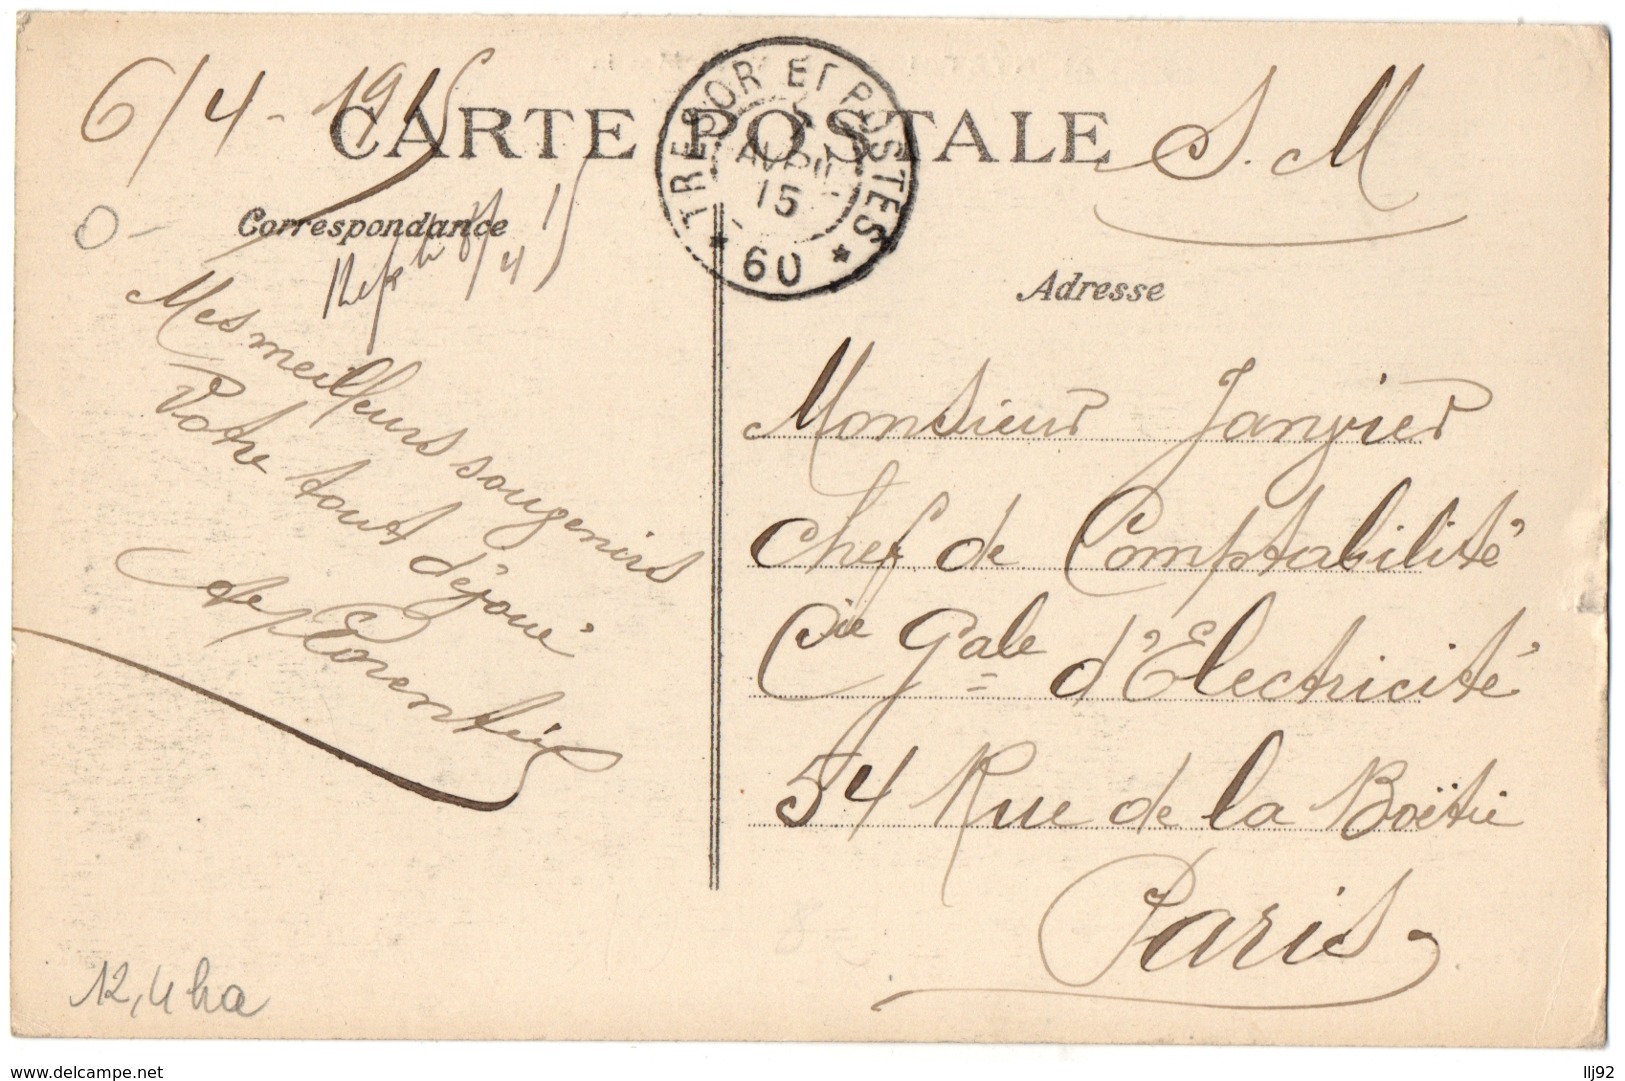 6/4-1915
CARTE POSTALE
S. M
TRESOR ET POSTES
AVRIL
15
* 60 *
0-
Correspondance
4 15
Adresse
Mes meilleurs souvenirs
Votre tout dévoué
Monsieur Janvier
Chef de Comptabilité
Cie Gale d'Electricité
54 Rue de la Boëtie
Paris
12,4 ha
www.delcampe.net
llj92